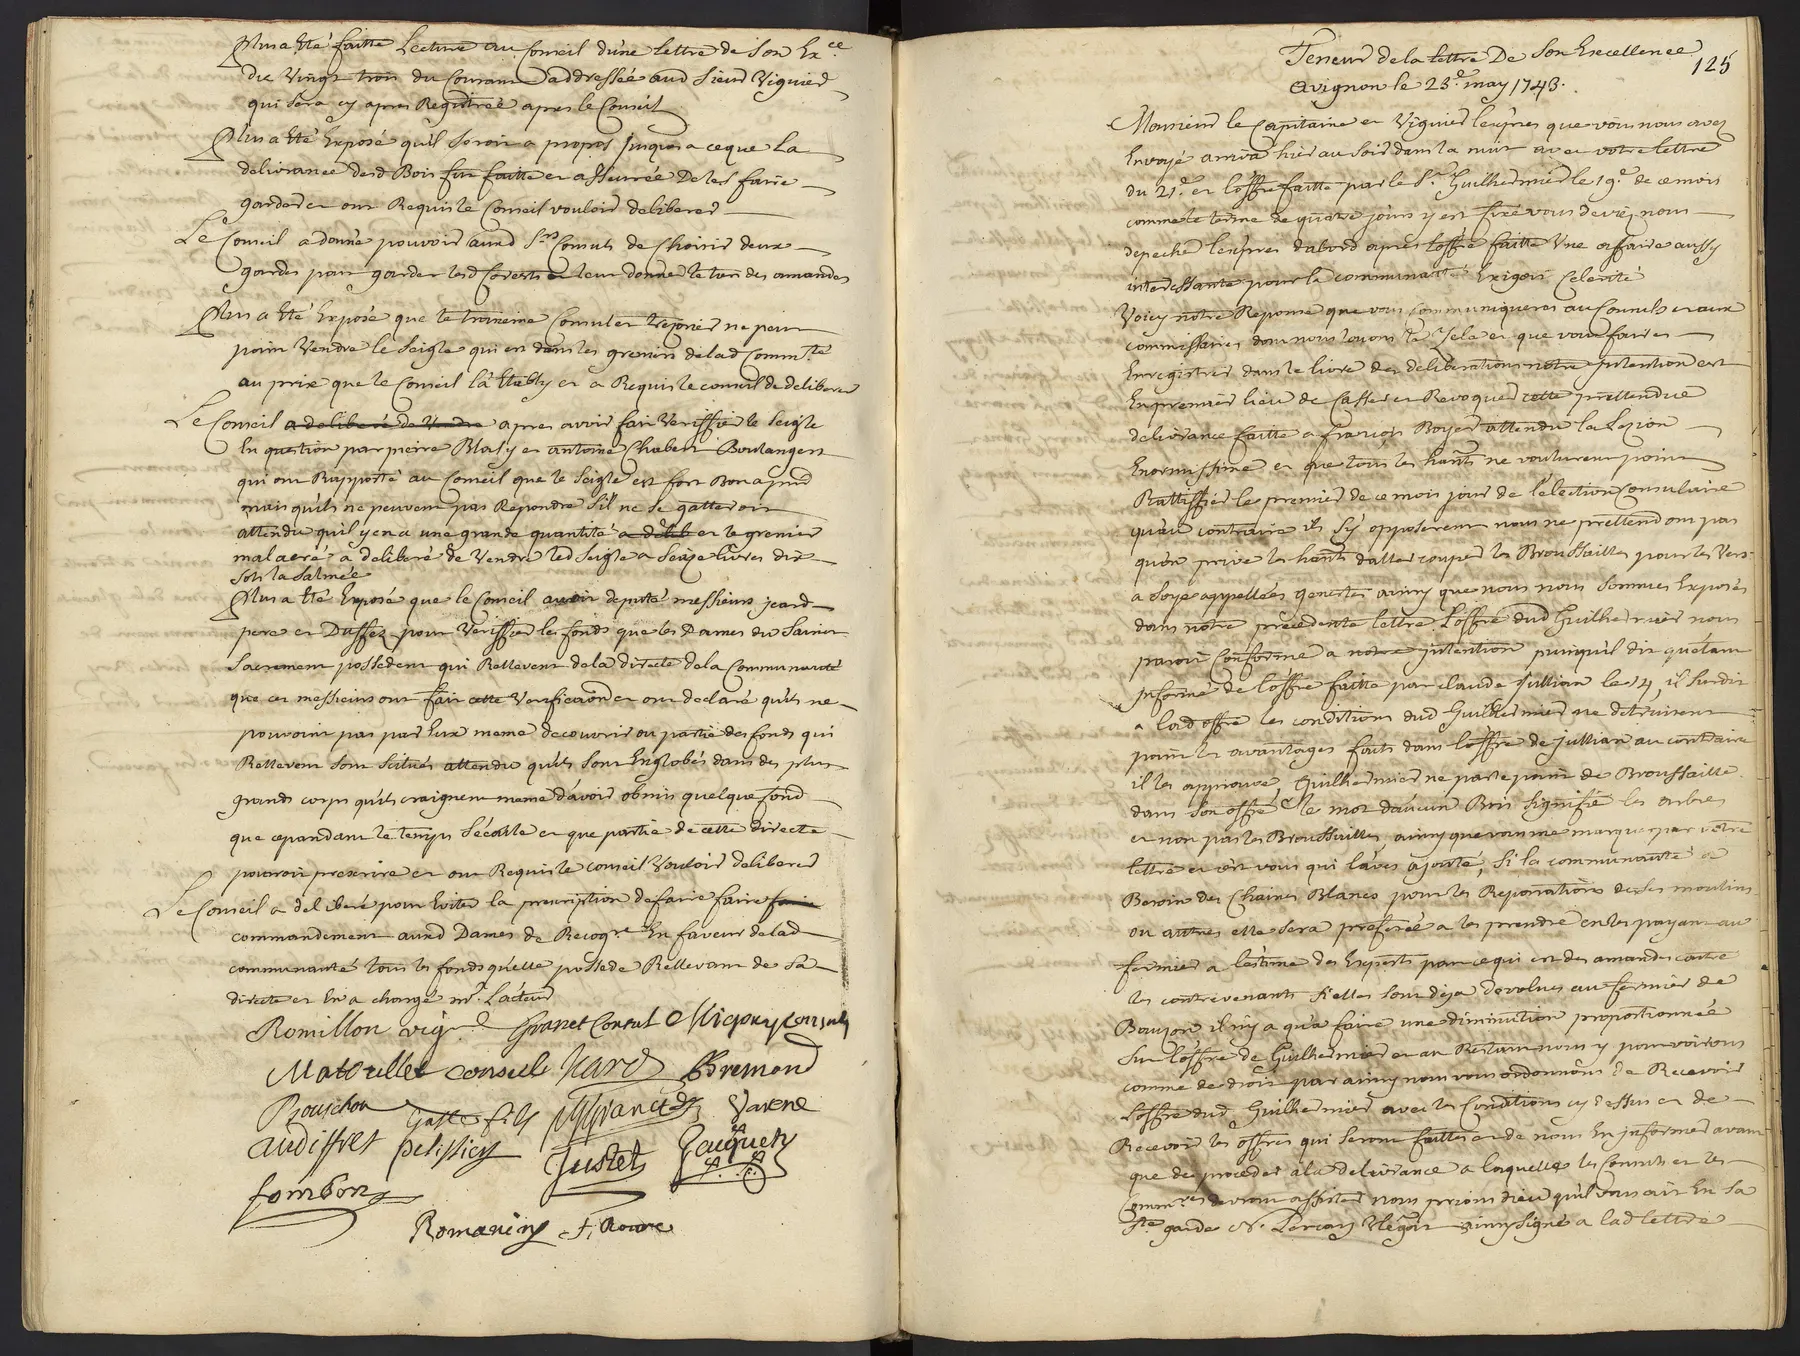 Plus a Eté faitte Lecture au Conseil d'une lettre de Son Ex.ce
du Vingt trois du Courant addressée aud Sieur Viguier
qui sera cy apres Registrée apres le Conseil
Plus a Eté Exposé quil seroit a propos jusques a ce que La
delivrance desd Bois fut faitte et assurée De les faire
garder et ont Requis le Conseil vouloir deliberer
Le Conseil a donné pouvoir auxd S.rs Consuls de Choisir deux
gardes pour garder lesd forests et leur donne le tiers des amandes
Plus a Eté Exposé que le troisieme Consul et Tresorier ne peut
point Vendre le Seigle qui est dans les greniers delad Comm.té
au prix que le Conseil l'a Etably et a Requis le conseil de deliberer
Le Conseil a deliberé de Vendre apres avoir fait Veriffier le Seigle
En question par pierre Blasy et antoine Chabert Boulangers
qui ont Rapporté au Conseil que le Seigle est fort Bon ajourd
mais qu'ils ne peuvent pas Repondre s'il ne se gatteroit
attendu quil y en a une grande quantité a delib et le grenier
mal aeré a deliberé de Vendre led Seigle a Seize livres dix
sols la Salmée
Plus a Eté Exposé que le Conseil avoir deputé messieurs jeard
pere et Duffez pour Veriffier les fonds que les Dames du Saint
Sacrement possedent qui Rellevent de la directe de la Communauté
que ces messieurs ont fait cette Verification et ont declaré qu'ils ne
pouvoint pas par Eux meme decouvrir ou partie des fonds qui
Rellevent sont Scitués attendu qu'ils sont Englobés dans des plus
grands corps qu'ils craignent meme d'avoir obmis quelque fond
que cepandant le temps s'écoule et que partie de cette directe
pourroit prescrire et ont Requis le conseil Vouloir deliberer
Le Conseil a deliberé pour Eviter la prescription de faire faire faire
commandement auxd Dames de Recoq.re En faveur delad
communauté tous les fonds qu'elle possede Rellevant de Sa
directe et En a chargé m.r L'acteur
Romillon vig.r Granet Consul Migony Consul
Matouillet consul jeard Bremond
Bouschon gasse fils Varene
audiffret pelissier Justet Jacquety
fombon
Romaniny F. Roure
Teneur de la lettre De Son Excellence
125
Avignon le 23.e may 1743.
Monsieur le Capitaine et Viguier l'exprés que vous nous avez
Envoyé arriva hier au Soir dans la nuit avec votre lettre
du 21.e et l'offre faitte par le S.r Guilhermier le 19.e de ce mois
comme le terme de quatre jours y est fixé vous deviés nous
depeché l'exprés d'abord apres l'offre faitte Une affaire aussy
interessante pour la communauté Exigeoit Celerité
Voicy notre Reponse que vous Communiquerés au Consuls et aux
commissaires dont nous louons le Zele et que vous fairés
Enregistrer dans le livre des deliberations notre intention est
En premier lieu de Casser et Revoquer cette prettendue
delivrance faitte a françois Boyer attendu la Lezion
Enormissime et que tous les hants ne voulurent point
Rattiffier le premier de ce mois jour de l'election Consulaire
qu'au contraire ils S'y opposerent nous ne prettendons pas
qu'on prive les hants d'aller couper les Broussailles pour les Vers
a Soye appellées genestes ainsy que nous nous Sommes Exposés
dans notre precedente lettre L'offre dud Guilhermier nous
paroit Conforme a notre intention puisqu'il dit qu'etant
informé de l'offre faitte par claude jullian le 14, il surdit
a lad offre les conditions dud Guilhermier ne detruisent
point les avantages faits dans l'offre de jullian au contraire
il les approuve, Guilhermier ne parle point de Broussaille
dans Son offre et le mot d'aucun Bois Signifie les arbres
et non pas les Broussailles ainsy que vous me marqués par votre
lettre et c'est vous qui l'avés ajouté, Si la communauté a
Besoin des Chaines Blancs pour les Reparations de Ses moulins
ou autres elle Sera preferée a les prendre en les payant au
fermier a l'estime des Experts pour ce qui est des amandes contre
les contrevenants Si elles sont deja devolues au fermier de
Boujon il n'y a qu'a faire une diminution proportionnée
Sur l'offre de Guilhermier et au Restant nous y pourvoirons
comme de droit par ainsy nous vous ordonnons de Recevoir
L'offre dud Guilhermier avec les Conditions cy dessus et de
Recevoir les offres qui seront faittes et de nous En informer avant
que de proceder a la delivrance a laquelle les Consuls et les
Comm.res devront assister nous prions dieu qu'il vous ait En Sa
S.te garde N. Lercari Vlegat ainsy signé a lad lettre